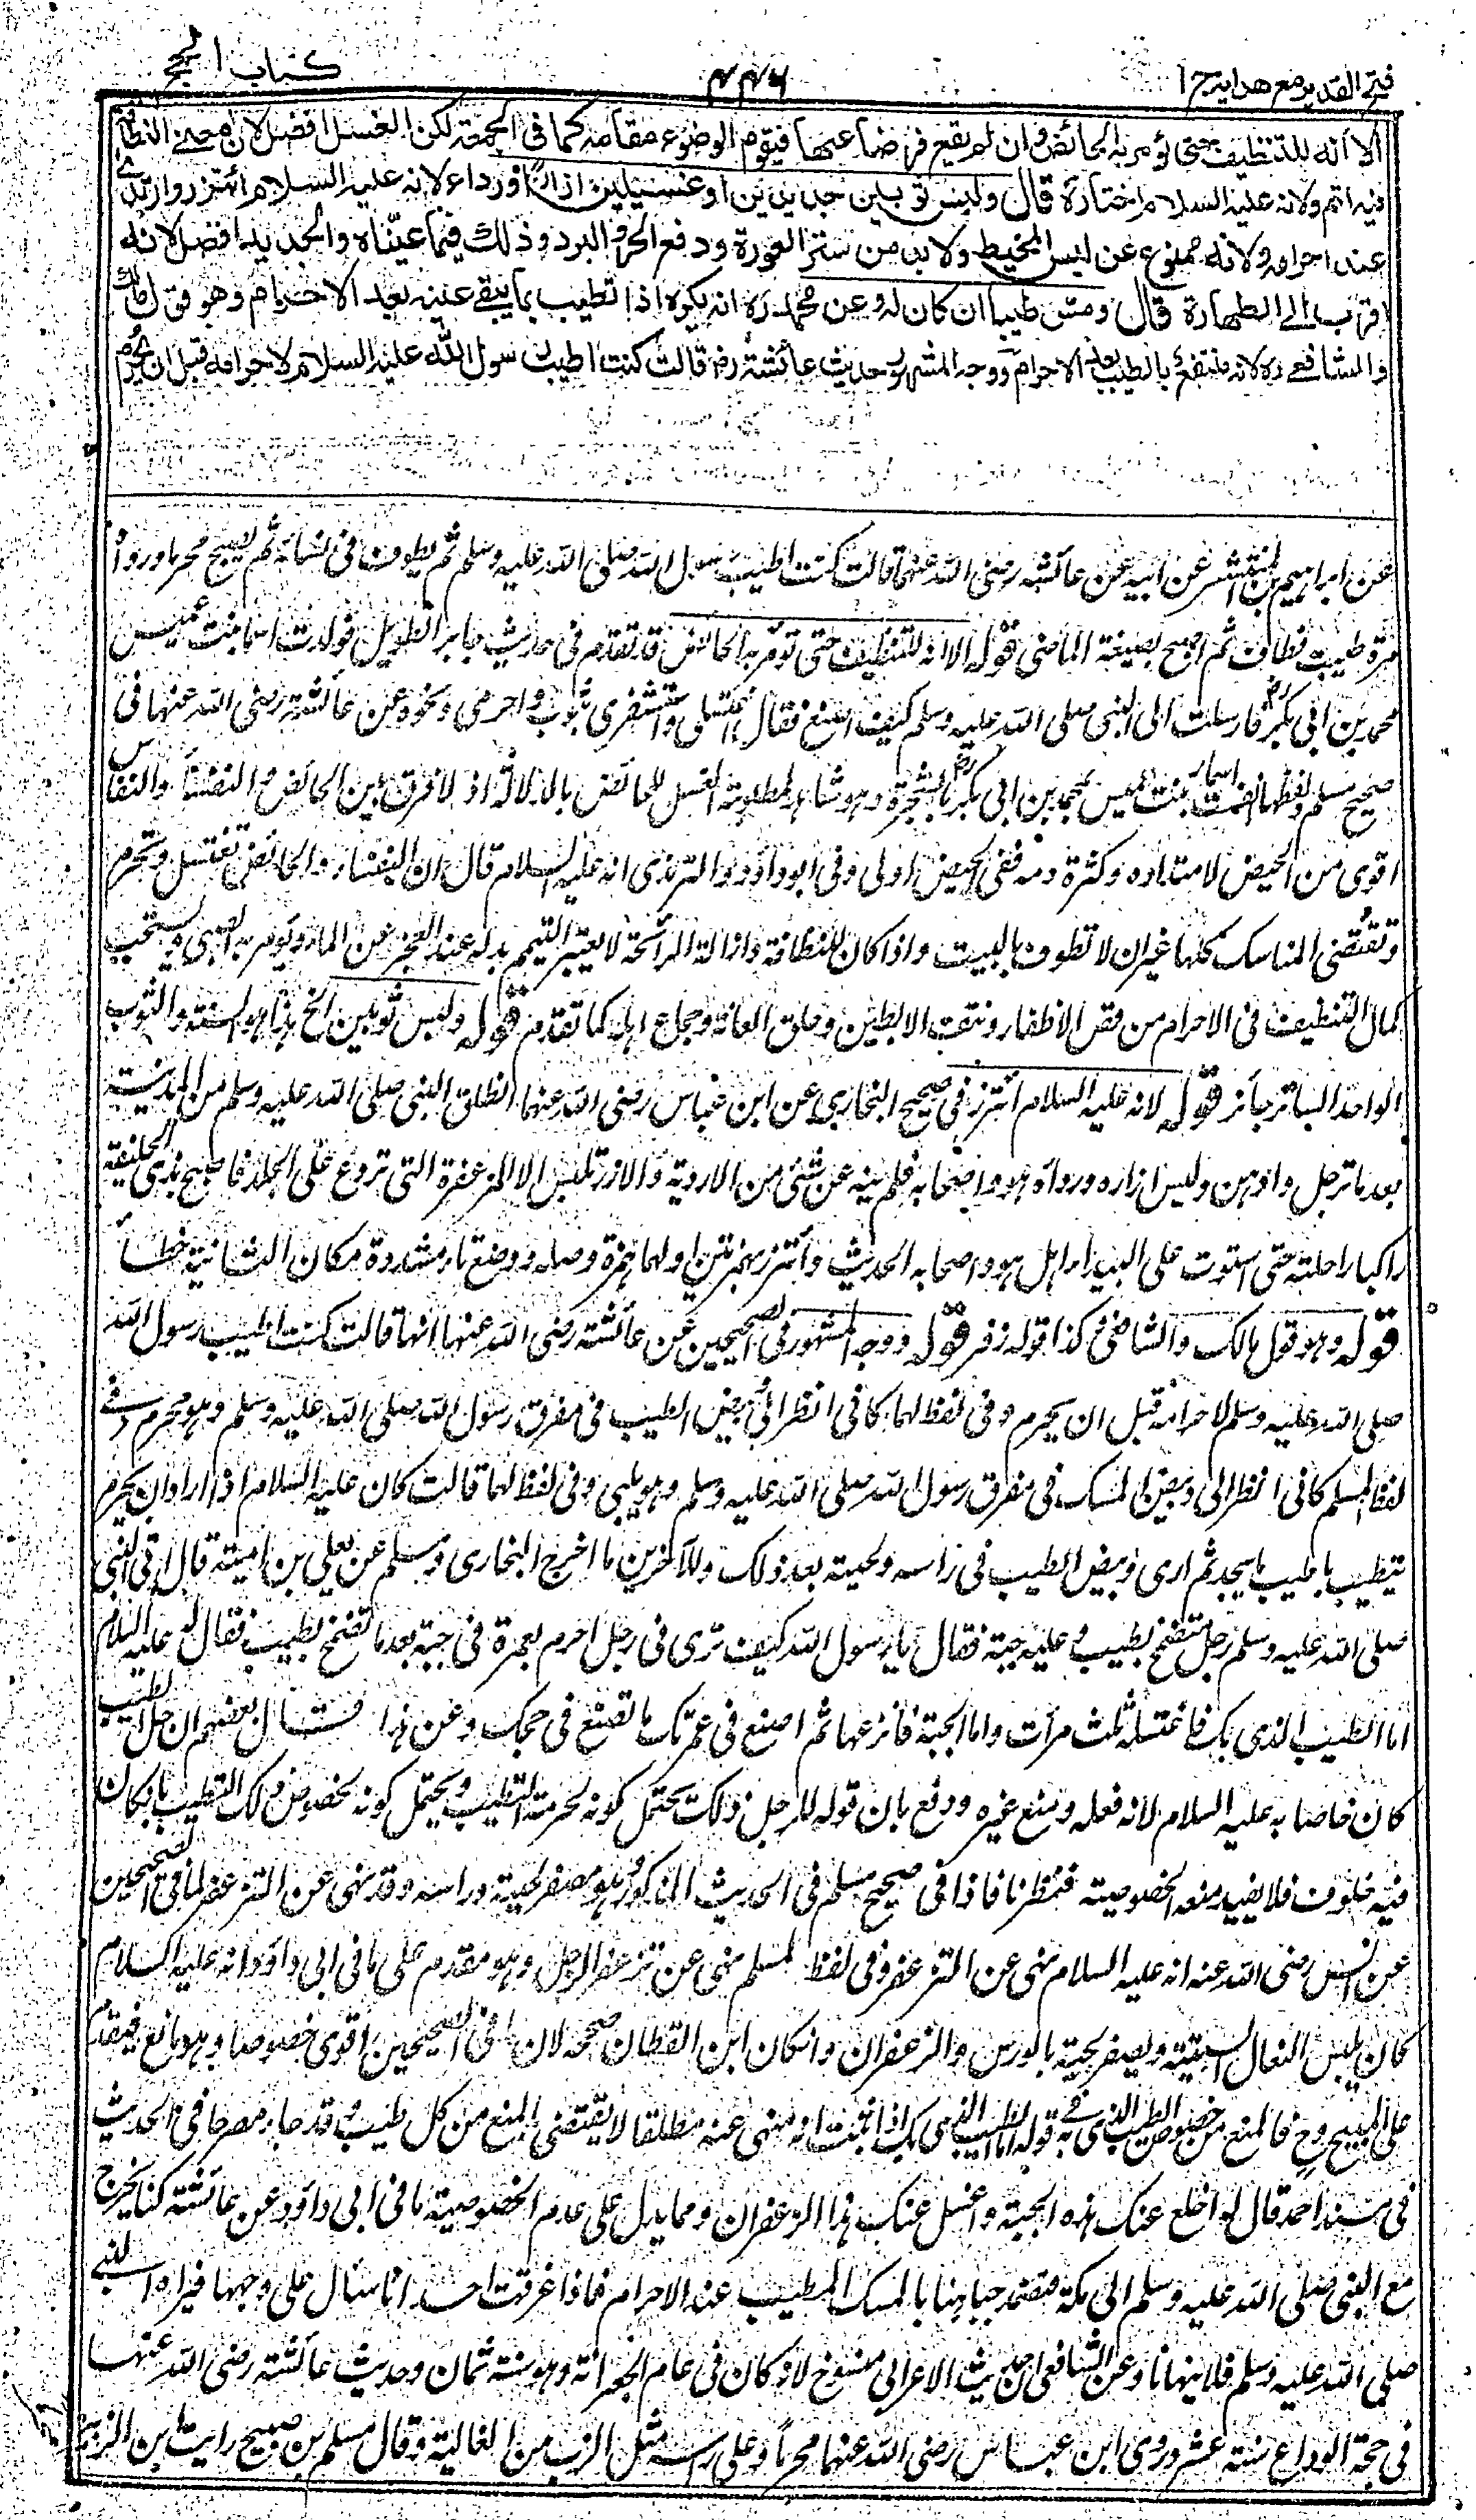 فتح القدير مع هدايه ج ١
٤٣٦
كتاب الحج
الا انه للتنظيف حتى تؤمر به الحائض وان لم يقع فرضا عنها فيقوم الوضوء مقامه كما في الجمعة لكن الغسل افضل لان معنى النظافة
فيه اتم ولانه عليه السلام اختاره قال ولبس ثوبين جديدين او غسيلين ازارا ورداء لانه عليه السلام ائتزر وارتدى
عند احرامه ولانه ممنوع عن لبس المخيط ولا بد من ستر العورة ودفع الحر والبرد وذلك فيما عيناه والجديد افضل لانه
اقرب الى الطهارة قال ومس طيبا ان كان له وعن محمد ره انه يكره اذا تطيب بما يبقى عينه بعد الاحرام وهو قول مالك
والشافعي ره لانه منتفع بالطيب بعد الاحرام ووجه المشهور حديث عائشة رض قالت كنت اطيب رسول الله عليه السلام لاحرامه قبل ان يحرم
عن ابراهيم بن المنتشر عن ابيه عن عائشة رضي الله عنها قالت كنت اطيب رسول الله صلى الله عليه وسلم ثم يطوف في نسائه ثم يصبح محرما ورواه
مرة طيبت فطاف ثم اصبح بصيغة الماضي قوله الا انه للتنظيف حتى تؤمر به الحائض قد تقدم في حديث جابر الطويل فولدت اسماء بنت عميس
محمد بن ابي بكر رض فارسلت الى النبي صلى الله عليه وسلم كيف اصنع فقال اغتسلي واستثفري بثوب واحرمي ونحوه عن عائشة رضي الله عنها في
صحيح مسلم ولفظها نفست اسماء بنت عميس بمحمد بن ابي بكر رض بالشجرة وهو شاهد لمطلوبية الغسل للحائض بالدلالة اذ لا فرق بين الحائض والنفساء والنفاس
اقوى من الحيض لامتداده وكثرة دمه ففي الحيض اولى وفي ابو داؤد والترمذي انه عليه السلام قال ان النفساء والحائض تغتسل وتحرم
وتقضي المناسك كلها غير ان لا تطوف بالبيت واذا كان للنظافة وازالة الرائحة لا يعتبر التيمم بدله عند العجز عن الماء ويؤمر به الصبي ويستحب
كمال التنظيف في الاحرام من قص الاظفار ونتف الابطين وحلق العانة وجماع اهله كما تقدم قوله ولبس ثوبين الخ هذا هو السنة والثوب
الواحد الساتر جائز قوله لانه عليه السلام ائتزر في صحيح البخاري عن ابن عباس رضي الله عنهما انطلق النبي صلى الله عليه وسلم من المدينة
بعد ما ترجل وادهن ولبس ازاره ورداه هو واصحابه فلم ينه عن شئ من الاردية والازر تلبس الا المزعفرة التي تردع على الجلد فاصبح بذي الحليفة
راكبا راحلته حتى استوت على البيداء اهل هو واصحابه الحديث وائتزر بهمزتين اولهما همزة وصل ووضع تاء مشددة مكان الثانية خطأ
قوله وهو قول مالك والشافعي وكذا قول زفر قوله ووجه المشهور في الصحيحين عن عائشة رضي الله عنها انها قالت كنت اطيب رسول الله
صلى الله عليه وسلم لاحرامه قبل ان يحرم وفي لفظ لهما كاني انظر الى وبيص الطيب في مفرق رسول الله صلى الله عليه وسلم وهو محرم وفي
لفظ لمسلم كاني انظر الى وبيص المسك في مفرق رسول الله صلى الله عليه وسلم وهو يلبي وفي لفظ لهما قالت كان عليه السلام اذا اراد ان يحرم
يتطيب باطيب ما يجد ثم ارى وبيص الطيب في راسه ولحيته بعد ذلك وللآخرين ما اخرج البخاري ومسلم عن يعلي بن امية قال اتي النبي
صلى الله عليه وسلم رجل متضمخ بطيب وعليه جبة فقال يا رسول الله كيف ترى في رجل احرم بعمرة في جبة بعد ما تضمخ بطيب فقال له عليه السلام
اما الطيب الذي بك فاغتسله ثلث مرات واما الجبة فانزعها ثم اصنع في عمرتك ما تصنع في حجك وعن هذا قال بعضهم ان حل الطيب
كان خاصا به عليه السلام لانه فعله ومنع غيره ودفع بان قوله للرجل ذلك يحتمل كونه لحرمة التطيب ويحتمل كونه لخصوص ذلك الطيب بان كان
فيه خلوق فلا يفيد منعه الخصوصية فنظرنا فاذا في صحيح مسلم في الحديث المذكور وهو مصفر لحيته وراسه وقد نهى عن التزعفر لما في الصحيحين
عن انس رضي الله عنه انه عليه السلام نهى عن التزعفر وفي لفظ لمسلم نهى عن تزعفر الرجل وهو مقدم على ما في ابي داؤد انه عليه السلام
كان يلبس النعال السبتية ويصفر لحيته بالورس والزعفران وان كان ابن القطان صححه لان ما في الصحيحين اقوى خصوصا وهو مانع فيقدم
على المبيح وح فالمنع من خصوص الطيب الذي به في قوله اما الطيب الذي بك اذا ثبت انه نهى عنه مطلقا لا يقتضي المنع من كل طيب وقد جاء مصرحا في الحديث
في مسند احمد قال له اخلع عنك هذه الجبة واغسل عنك هذا الزعفران ومما يدل على عدم الخصوصية ما في ابي داؤد عن عائشة كنا نخرج
مع النبي صلى الله عليه وسلم الى مكة فنضمد جباهنا بالمسك المطيب عند الاحرام فاذا عرقت احدانا سال على وجهها فيراه النبي
صلى الله عليه وسلم فلا ينهانا وعن الشافعي ان حديث الاعرابي منسوخ لانه كان في عام الجعرانة وهو سنة ثمان وحديث عائشة رضي الله عنها
في حجة الوداع سنة عشر وروى ابن عباس رضي الله عنهما محرما وعلى راسه مثل الرب من الغالية وقال مسلم بن صبيح رايت ابن الزبير